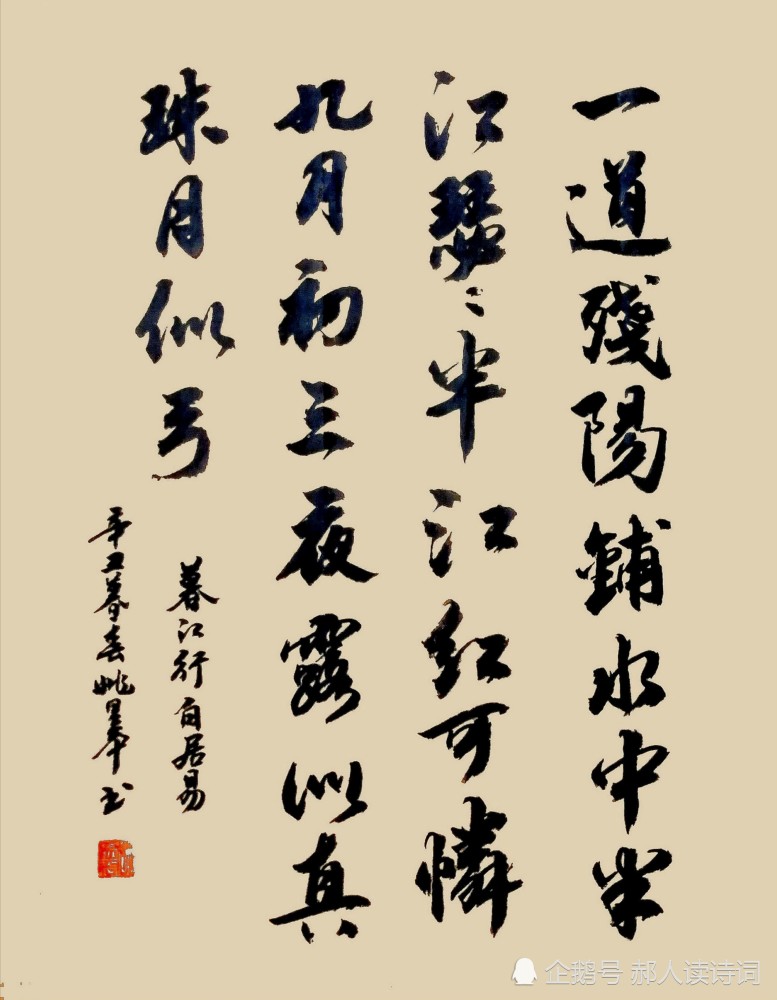 一道殘陽鋪水中半
江瑟〻半江紅可憐
九月初三夜露似真
珠月似弓
暮江行白居易
辛丑暮春姚书
企鹅号 郝人读诗词